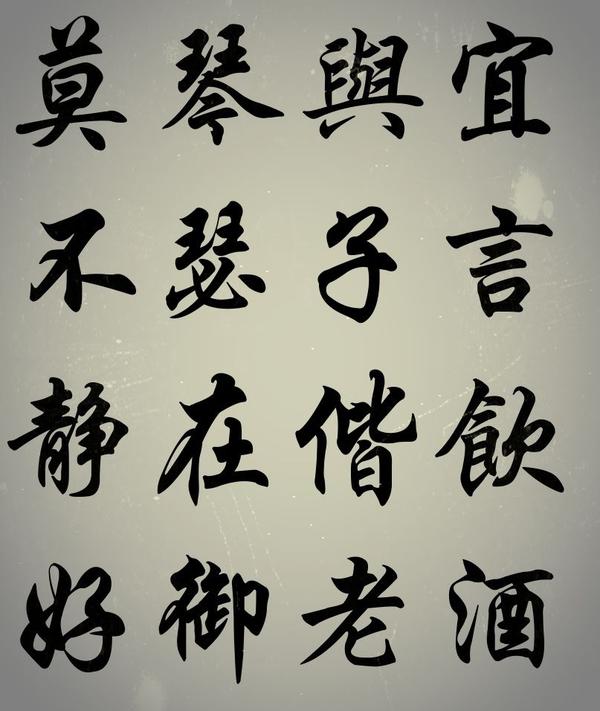 宜言飲酒
與子偕老
琴瑟在御
莫不静好